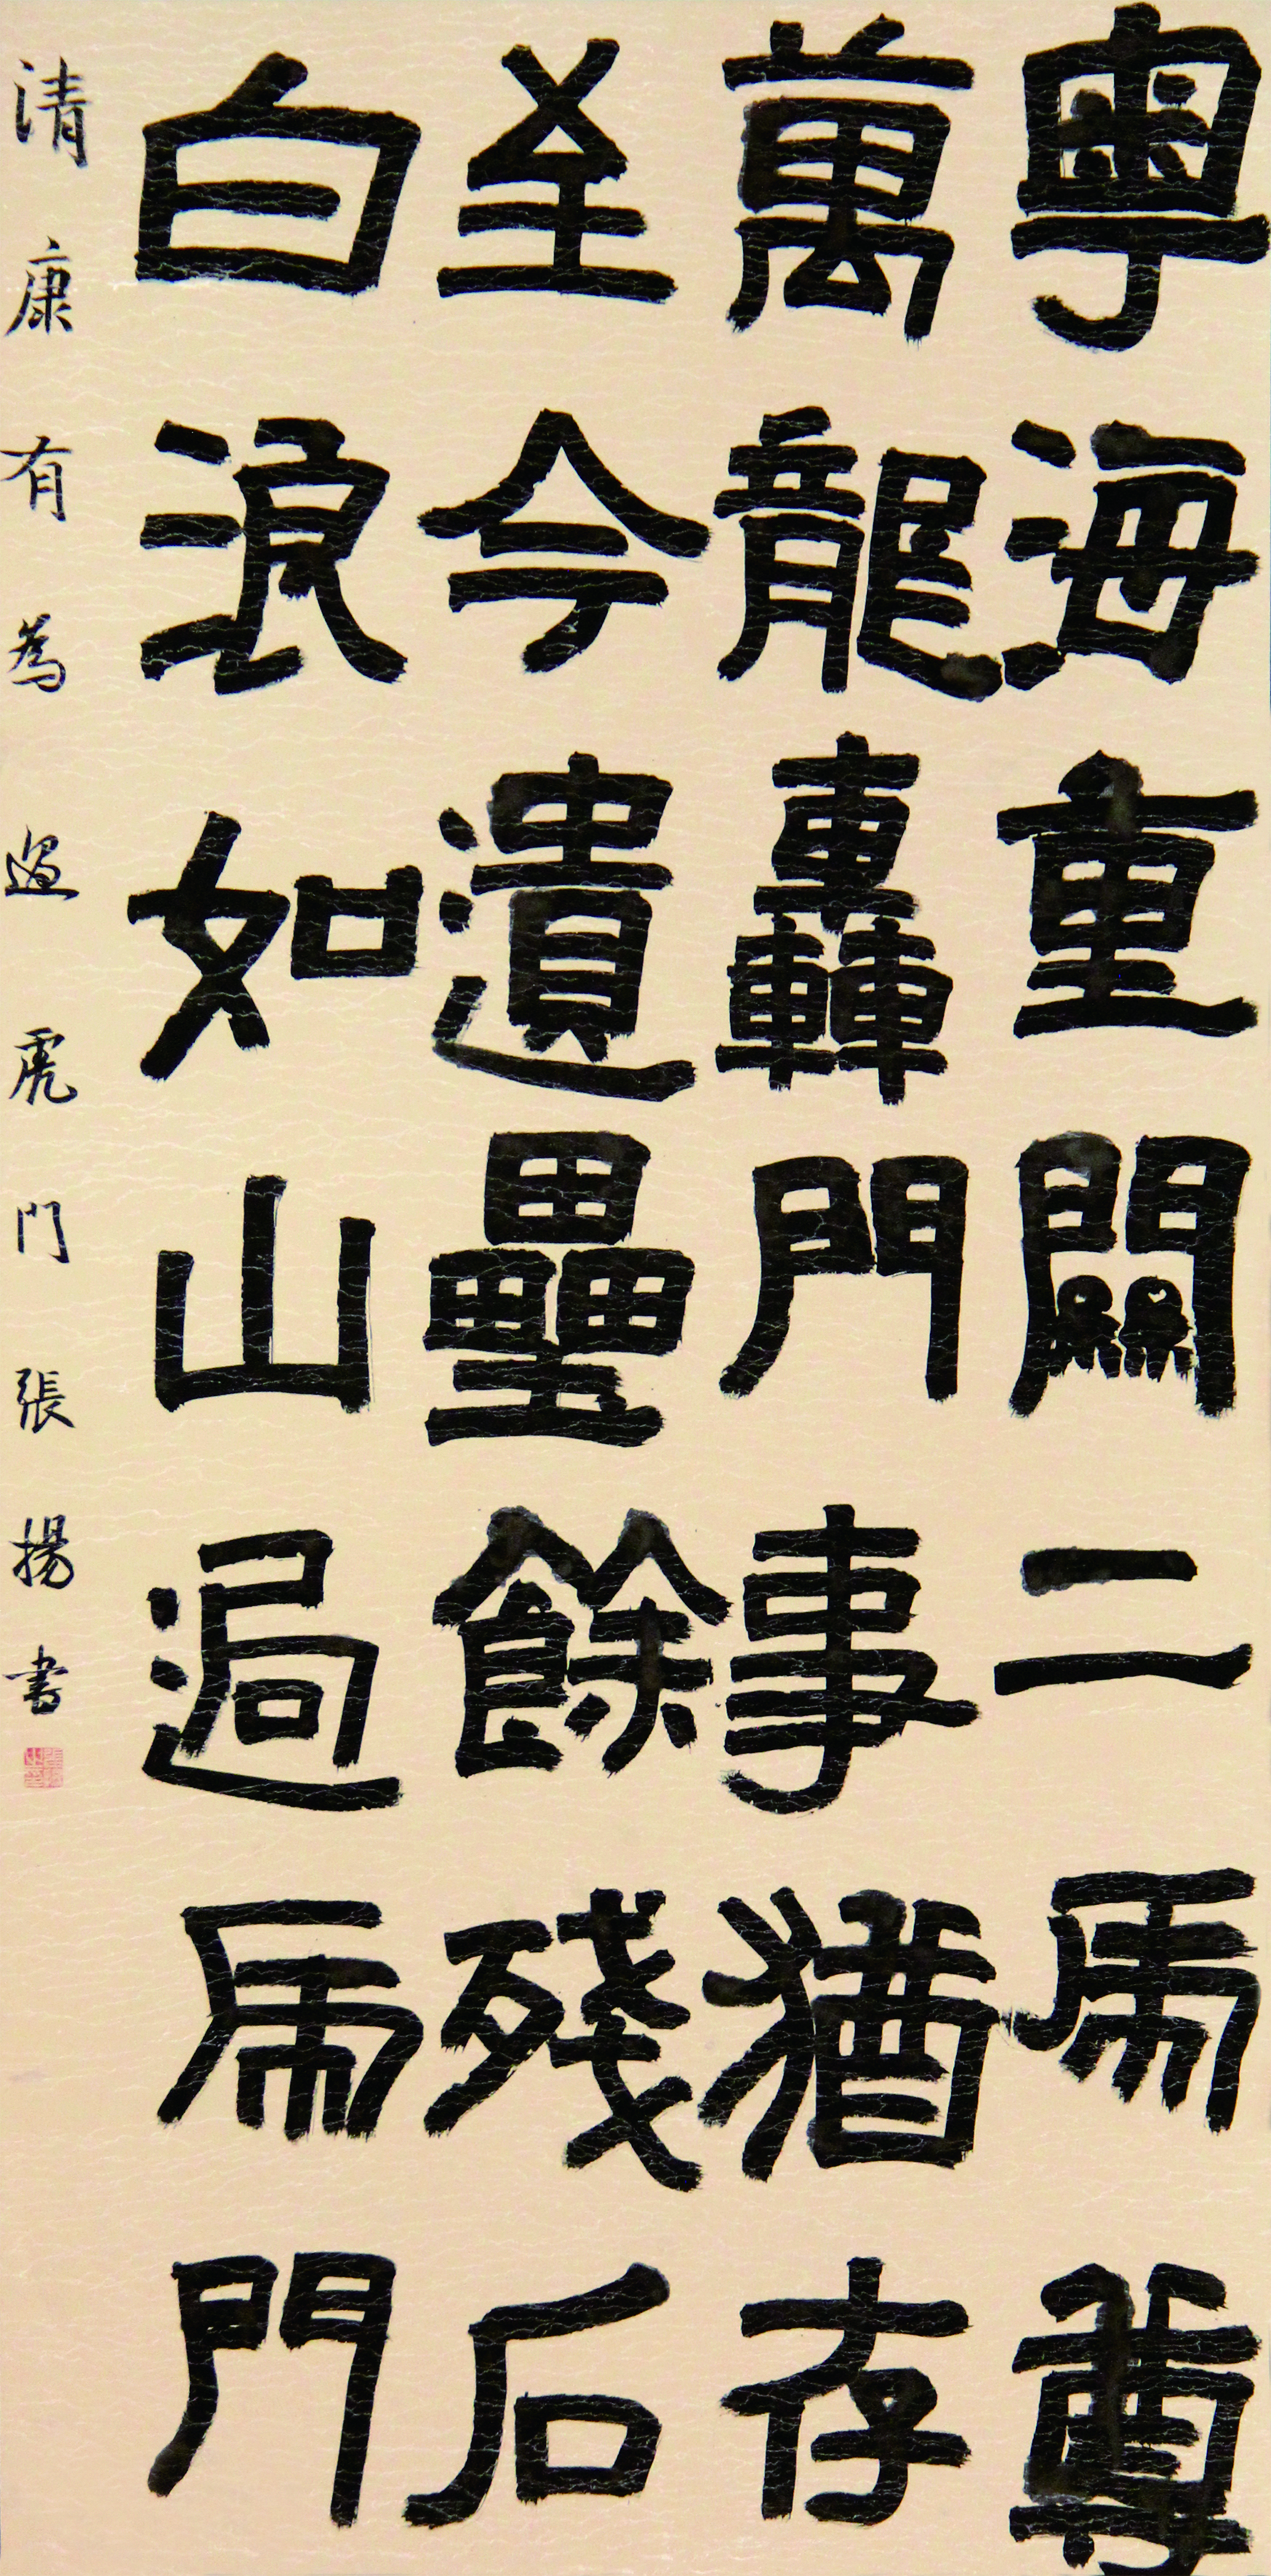 粵海重關二虎尊
萬龍轟門事猶存
至今遺壘餘殘石
白浪如山過虎門
清康有為過虎門張揚書